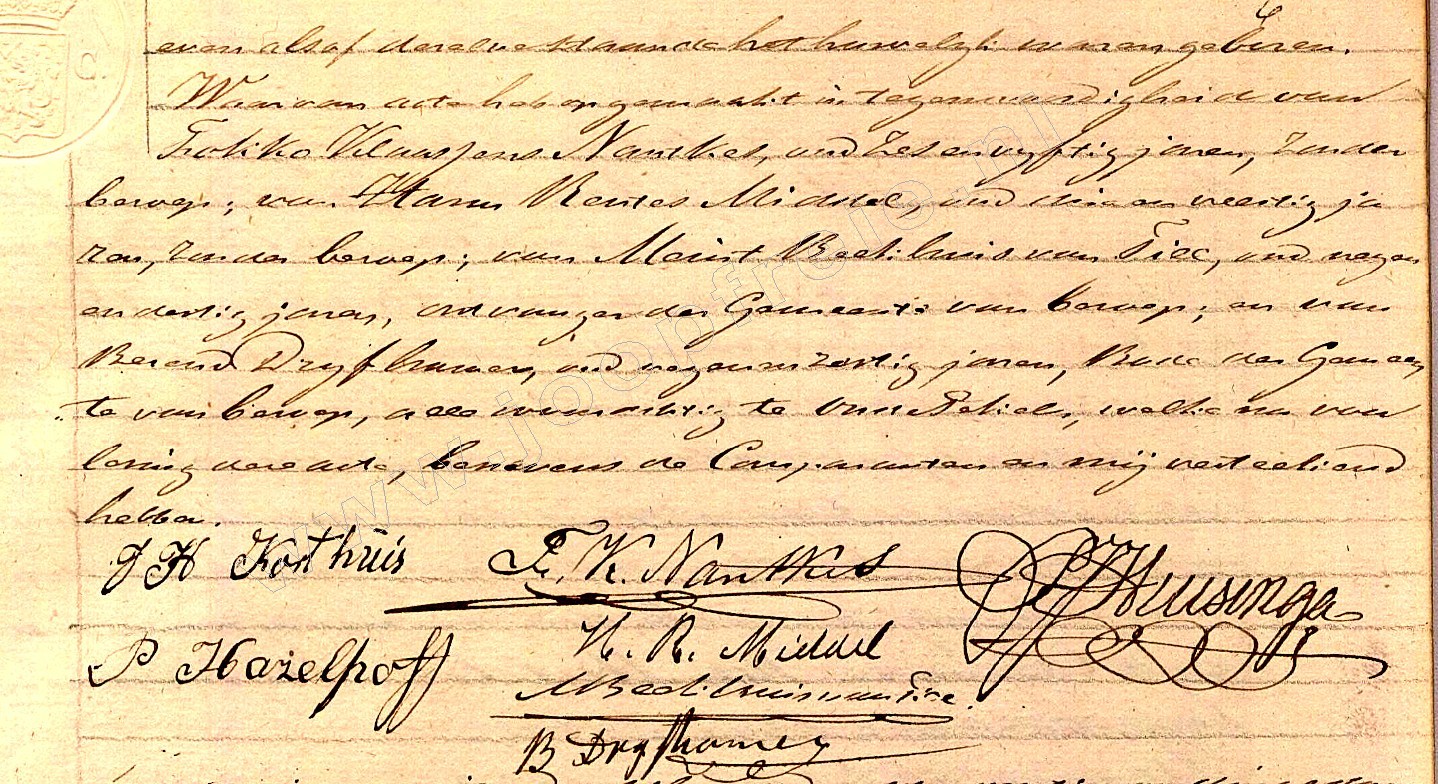 even alsof dezelve staande het huwelijk waren geboren.
Waarvan acte heb opgemaakt in tegenwoordigheid van
Fokko Klaassens Nantkes, oud zes en vyftig jaren, zonder
beroep; van Harm Rentes Middel, oud en veertig ja
ren, zonder beroep; van Meint Beekhuis van Till, oud negen
en dertig jaren, ontvanger der Gemeente van beroep; en van
Berend Dryfhamer, oud negenenzestig jaren, Bode der Gemeen
te van beroep, alle woonachtig te welke na voor
lezing deze acte, benevens de Comparanten en mij verteekend
hebben.
J H Korthuis F. K. Nantkes Huisinga
P Hazelhoff H. R. Middel
MBeekhuis van Till.
B Dryfhamer
www.joopfrelie.nl